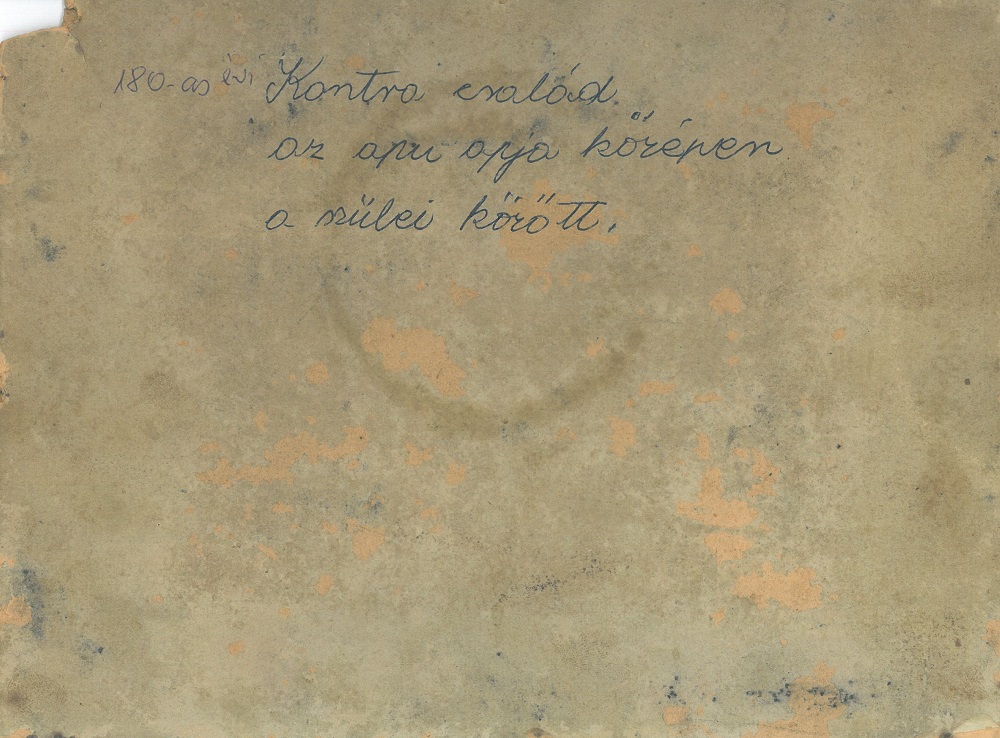 180-as évi Kontra család
az apu apja kőzépen
a szülei kőzőtt.